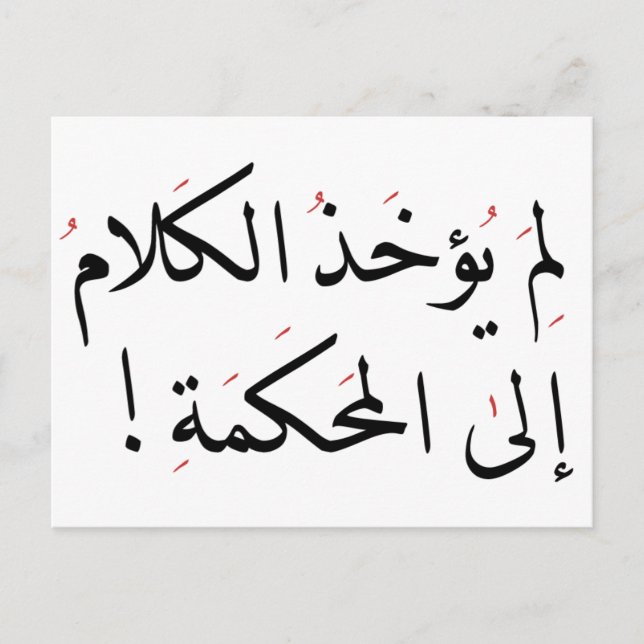 لِمَ يُؤخَذُ الكَلامُ
إلىٰ المَحَكَمَةِ !